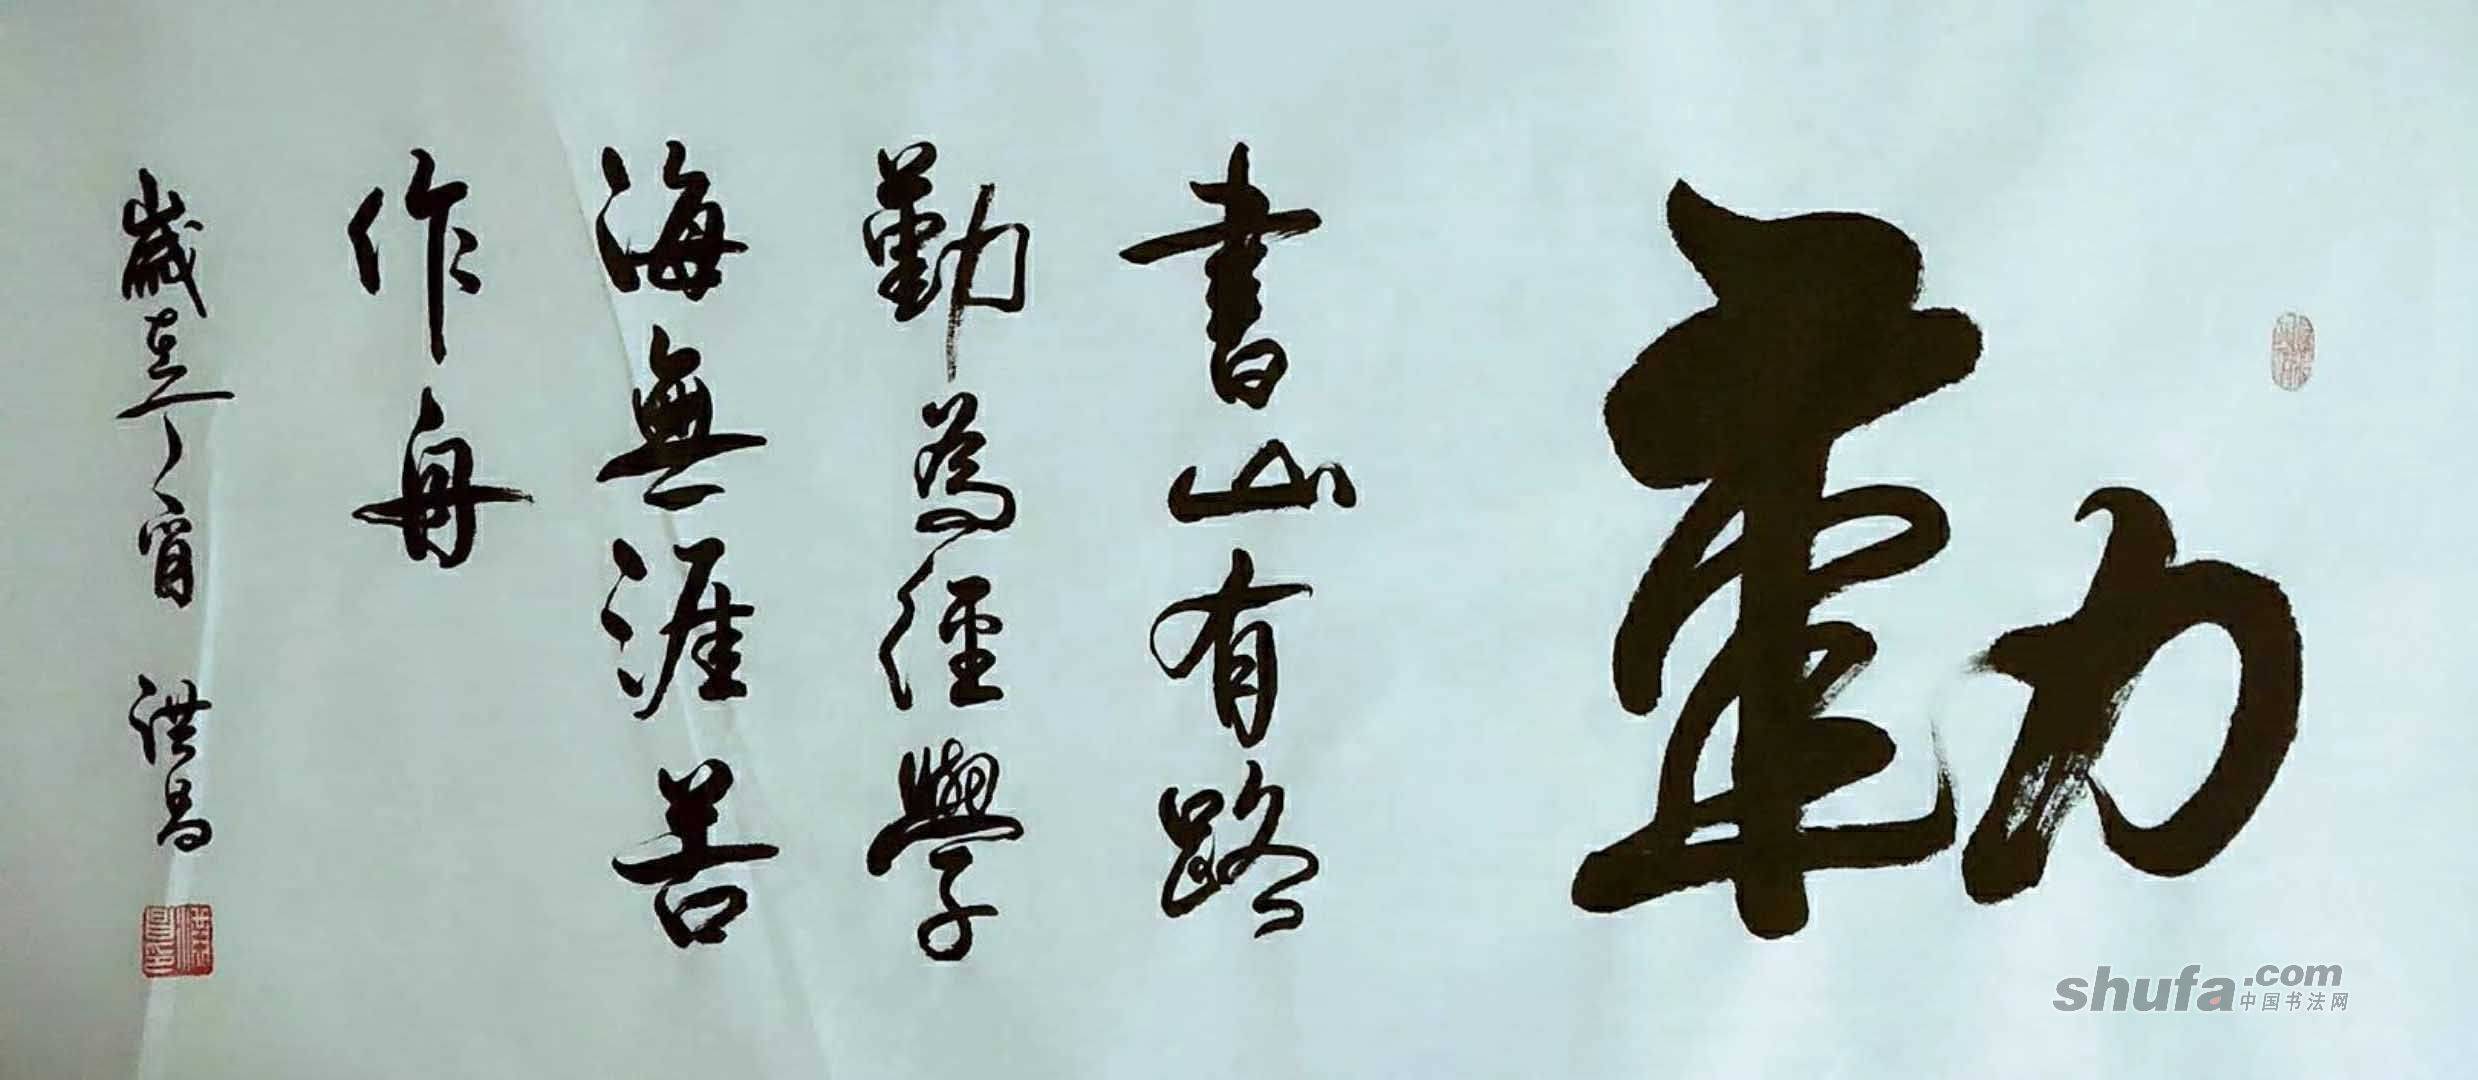 勤
書山有路
勤為徑學
海無涯苦
作舟
歲在丁酉 洪
shufa.com
中国书法网